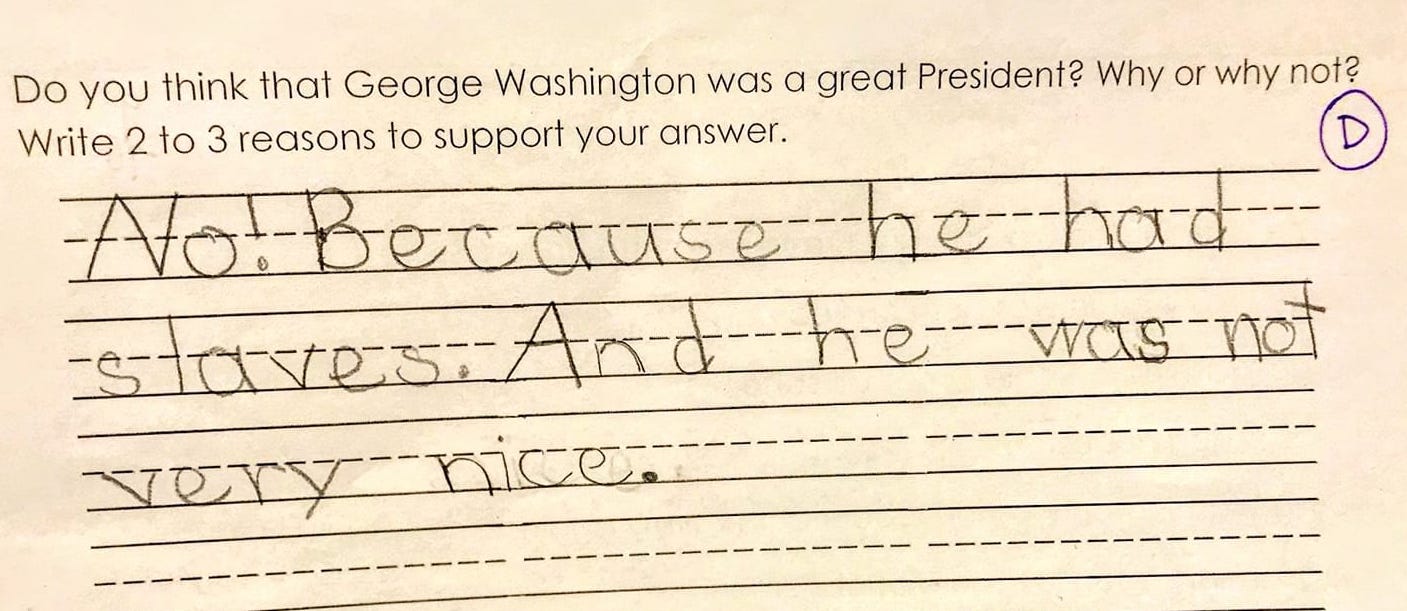 Do you think that George Washington was a great President? Why or why not?
Write 2 to 3 reasons to support your answer.
D
No! Because he had
slaves. And he was not
very nice.